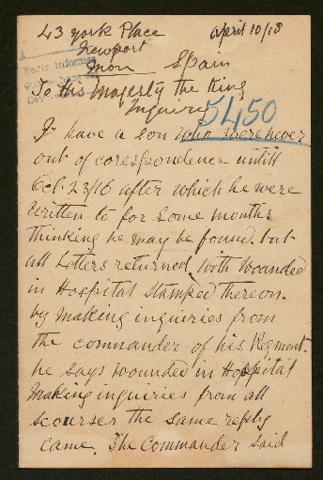 43 York Place April 10/18
Newport
Mon Spain
Pedir informes
To His Magesty the King
Inquiry 5450
I have a son who were never
out of corespondence untill
Oct 23/16 after which he were
written to for some months
thinking he may be found but
all letters returned with Woanded
in Hospital stamped thereon.
by making inquiries from
the commander of his Regment.
he says wounded in Hospital
Making inquries from all
scourser the same reply
came. The Commander said